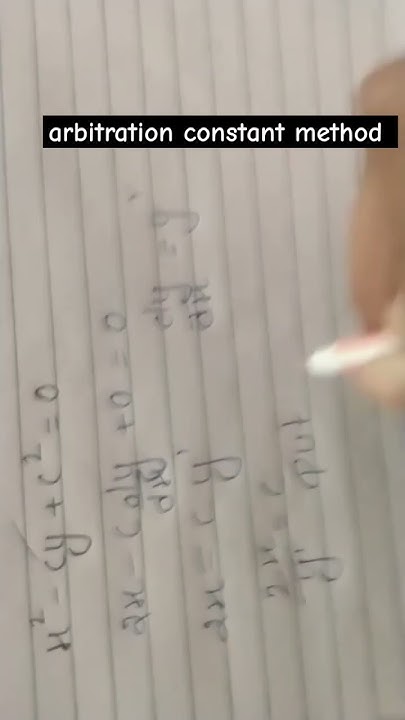 arbitration constant method
x² - cy + c² = 0
2x - c dy/dx + 0 = 0
dy/dx = y'
2x = cy'
2x/y' = c put